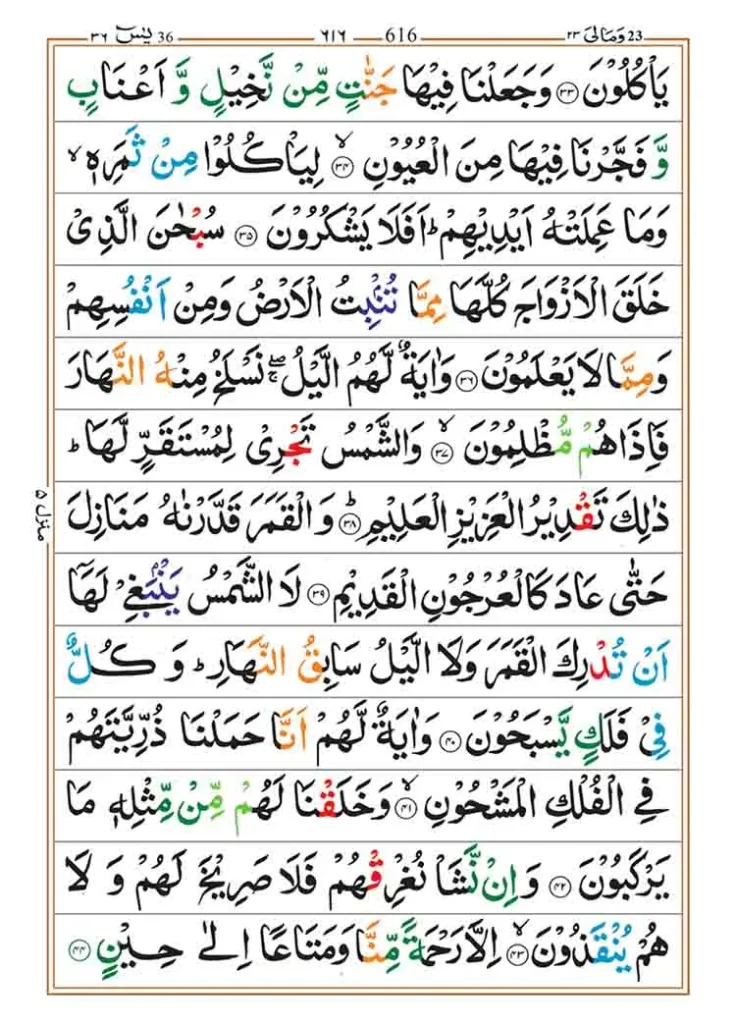 36 یٰسٓ ۳۶
616 ۶۱۶
23 وَمَالِیَ ۲۳
یَاْكُلُوْنَ ﴿۳۳﴾ وَجَعَلْنَا فِیْهَا جَنّٰتٍ مِّنْ نَّخِیْلٍ وَّ اَعْنَابٍ
وَّ فَجَّرْنَا فِیْهَا مِنَ الْعُیُوْنِ ﴿۳۴﴾ۙ لِیَاْكُلُوْا مِنْ ثَمَرِهٖ ۙ
وَمَا عَمِلَتْهُ اَیْدِیْهِمْ ؕ اَفَلَا یَشْكُرُوْنَ ﴿۳۵﴾ سُبْحٰنَ الَّذِیْ
خَلَقَ الْاَزْوَاجَ كُلَّهَا مِمَّا تُنْۢبِتُ الْاَرْضُ وَمِنْ اَنْفُسِهِمْ
وَمِمَّا لَا یَعْلَمُوْنَ ﴿۳۶﴾ وَاٰیَةٌ لَّهُمُ الَّیْلُ ۖۚ نَسْلَخُ مِنْهُ النَّهَارَ
فَاِذَا هُمْ مُّظْلِمُوْنَ ﴿۳۷﴾ۙ وَالشَّمْسُ تَجْرِیْ لِمُسْتَقَرٍّ لَّهَا ؕ
ذٰلِكَ تَقْدِیْرُ الْعَزِیْزِ الْعَلِیْمِ ﴿۳۸﴾ؕ وَالْقَمَرَ قَدَّرْنٰهُ مَنَازِلَ
حَتّٰی عَادَ كَالْعُرْجُوْنِ الْقَدِیْمِ ﴿۳۹﴾ لَا الشَّمْسُ یَنْۢبَغِیْ لَهَاۤ
اَنْ تُدْرِكَ الْقَمَرَ وَلَا الَّیْلُ سَابِقُ النَّهَارِ ؕ وَ كُلٌّ
فِیْ فَلَكٍ یَّسْبَحُوْنَ ﴿۴۰﴾ وَاٰیَةٌ لَّهُمْ اَنَّا حَمَلْنَا ذُرِّیَّتَهُمْ
فِی الْفُلْكِ الْمَشْحُوْنِ ﴿۴۱﴾ۙ وَخَلَقْنَا لَهُمْ مِّنْ مِّثْلِهٖ مَا
یَرْكَبُوْنَ ﴿۴۲﴾ وَاِنْ نَّشَاْ نُغْرِقْهُمْ فَلَا صَرِیْخَ لَهُمْ وَ لَا
هُمْ یُنْقَذُوْنَ ﴿۴۳﴾ۙ اِلَّا رَحْمَةً مِّنَّا وَمَتَاعًا اِلٰی حِیْنٍ ﴿۴۴﴾
منزل ۵